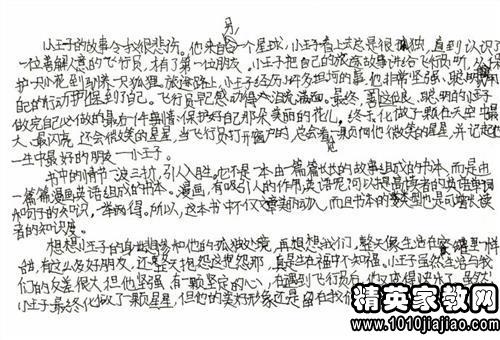 小王子的故事令我很悲伤。他来自另一个星球，小王子看上去总是很孤独，直到认识了
一位善解人意的飞行员，有了第一位朋友。小王子把自己的旅途故事讲给飞行员听，从保
护一朵小花到驯养一只狐狸。旅途路上，小王子经历了许多坎坷的事，他非常坚强、聪明，用自
己的行动护保到了自己。飞行员听感动得热泪满面。最终，善良、聪明的小王子
做完自己必做的最后一件事情：保护好自己那朵美丽的花儿。终于化做了一颗在天空中最
大、最闪亮，还会微笑的星星，当飞行员打开窗户时，总会看见一颗向他微笑的星星，并记起他
一生中最好的朋友——小王子。
书中的情节一波三折，引人入胜。它不是一本由一篇篇长长的故事组成的书本，而是由
一篇篇漫画英语组成的书本。漫画，有吸引人的作用，英语呢可以提高读者的英语单词
和句子的知识，一举两得。所以，这本书中不仅文章动人，而且书本的类型也是可增长读
者的知识度。
想想小王子的身世悲惨和他的孤独处境，再想想我们，整天像生活在蜜罐里一样
甜，有这么多好朋友，还整天抱怨这抱怨那，真是生在福中不知福。小王子虽然生活与我
们的反差很大，但他坚强，有一颗坚定的心，在遇到飞行员后，他又变得快乐了。虽然
小王子最终化做了一颗星星，但他的美好形象还是留在我们
精英家教网
www.1010jiajiao.com